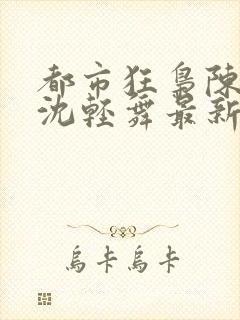 都市狂梟陳
沈輕舞最新
烏卡烏卡